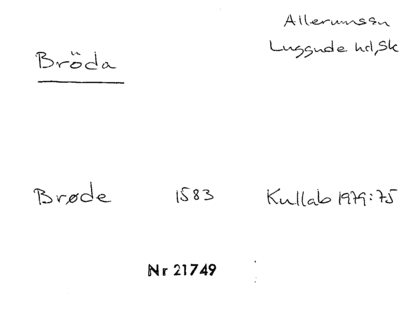 Allerumssn
Luggude hd, Sk
Bröda
Brøde 1583 Kullab 1979:75
Nr 21749